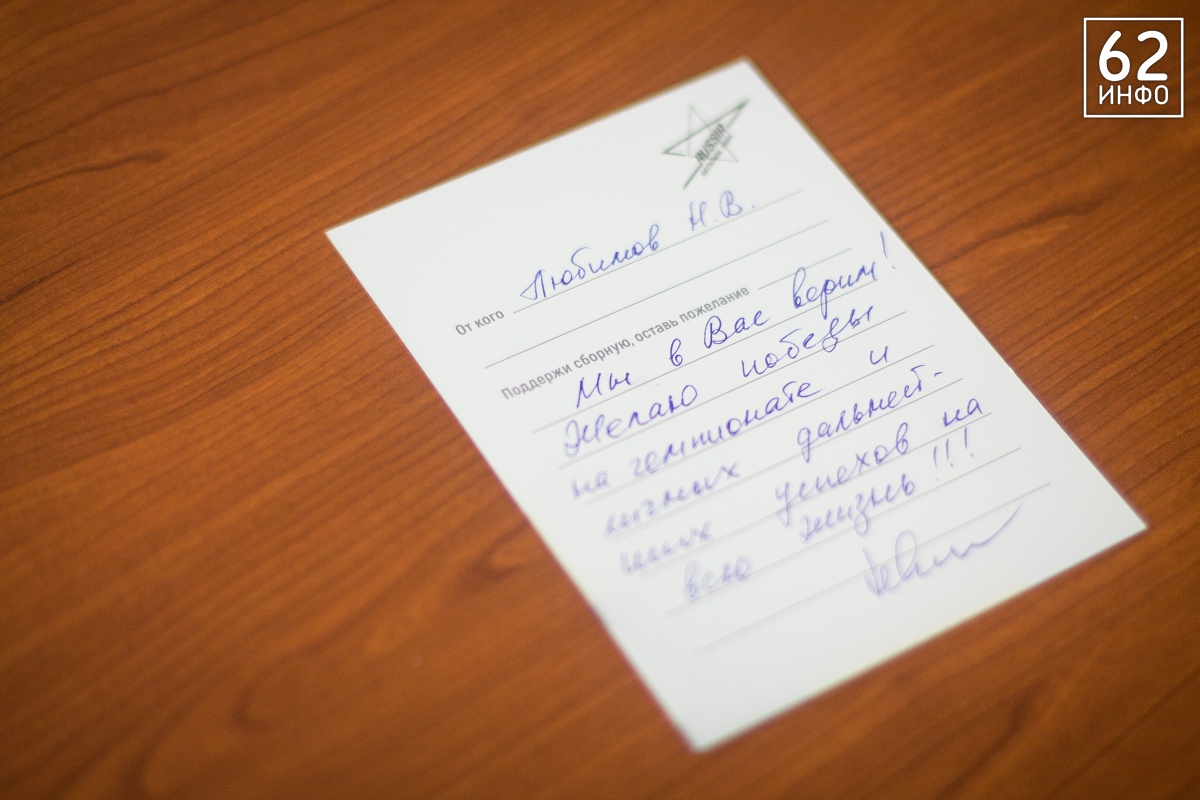 62
ИНФО
RUSSIA
От кого Любимов Н.В.
Поддержи сборную, оставь пожелание
Мы в Вас верим!
Желаю победы
на чемпионате и
личных дальнест-
ших успехов на
всю жизнь!!!